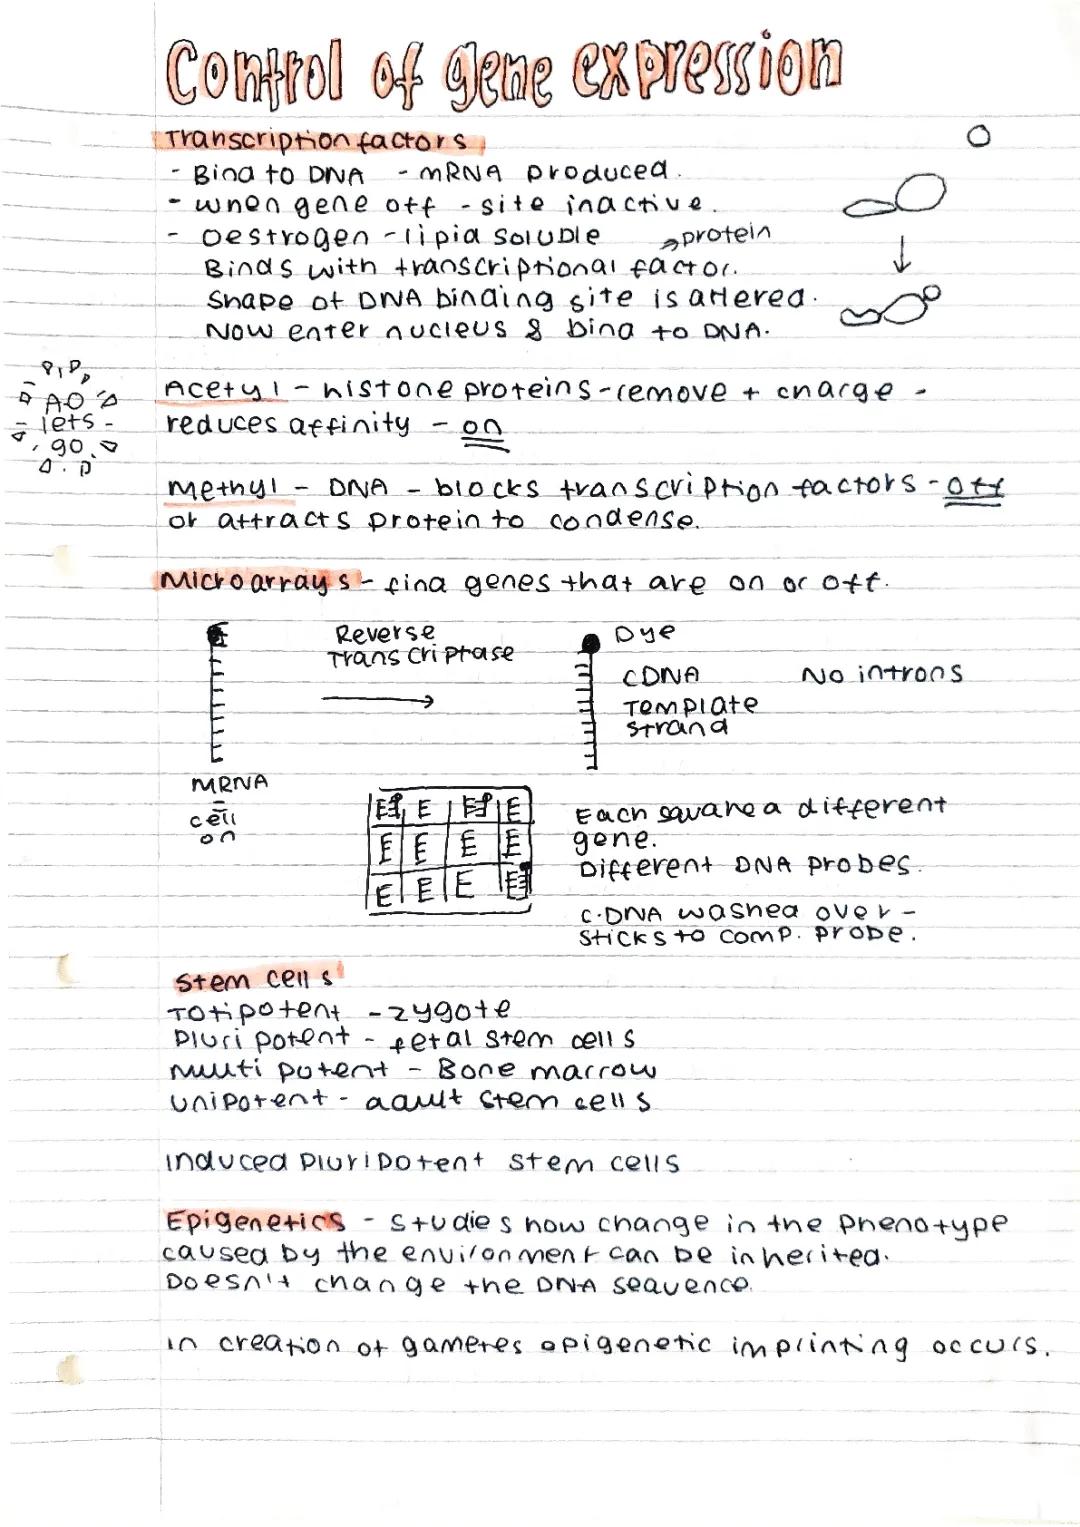 Control of gene expression
Transcription factors
- Bind to DNA - mRNA produced.
- when gene off - site inactive.
- oestrogen - lipid soluble → protein
Binds with transcriptional factor.
Shape of DNA binding site is altered.
Now enter nucleus & bind to DNA.
AO
lets
go
Acetyl - histone proteins - remove + charge -
reduces affinity - on
Methyl - DNA - blocks transcription factors - off
or attracts protein to condense.
Microarrays - find genes that are on or off.
Reverse
Transcriptase
Dye
CDNA
Template
strand
No introns
MRNA
cell
on
E E E E
E E E E
E E E E
Each square a different
gene.
Different DNA probes.
C.DNA washed over -
sticks to comp. probe.
Stem cells
Totipotent - zygote
Pluripotent - fetal stem cells
Multipotent - Bone marrow
Unipotent - adult stem cells
induced pluripotent stem cells
Epigenetics - studies how change in the phenotype
caused by the environment can be inherited.
Doesn't change the DNA sequence.
in creation of gametes epigenetic imprinting occurs.